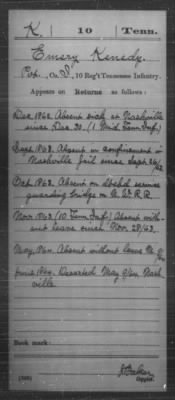 K. 10 Tenn.
Emery Kenedy.
Pvt., Co. D, 10 Reg't Tennessee Infantry.
Appears on Returns as follows:
Dec. 1862. Absent sick at Nashville
since Dec. 30. (1 Mid. Tenn Inf.)
Sept. 1863. Absent in confinement in
Nashville Jail since Sept. 26/63
Oct. 1863. Absent on detchd service
guarding bridge on N. W. R.R.
Nov. 1863 (10 Tenn. Inf.) Absent with-
out leave since Nov. 28/63.
May, 1864. Absent without leave
June 1864. Deserted May 9/64 Nash-
ville.
Book mark:
Copyist.